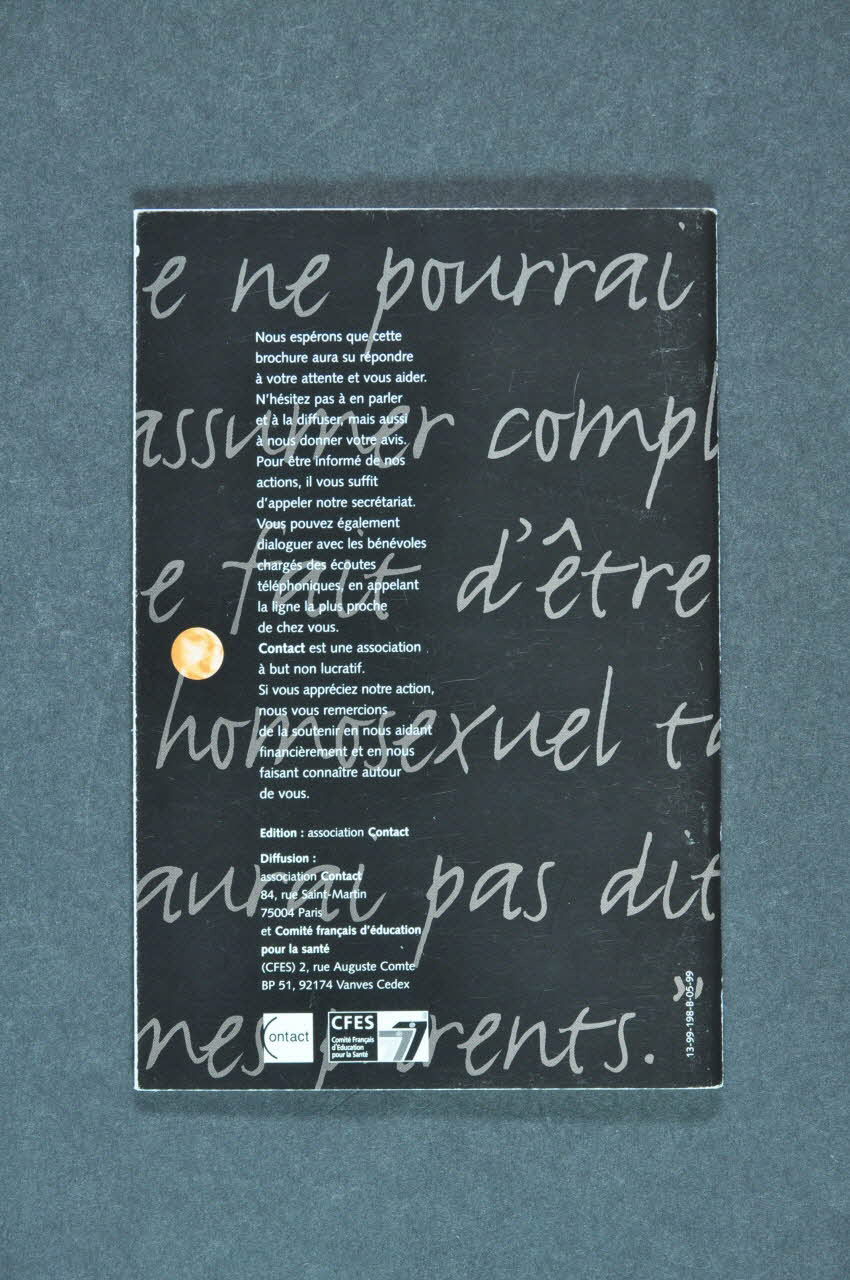 e ne pourrai
assumer compl
e fait d'être
homosexuel ta
aurai pas dit
mes parents. »
Nous espérons que cette
brochure aura su répondre
à votre attente et vous aider.
N'hésitez pas à en parler
et à la diffuser, mais aussi
à nous donner votre avis.
Pour être informé de nos
actions, il vous suffit
d'appeler notre secrétariat.
Vous pouvez également
dialoguer avec les bénévoles
chargés des écoutes
téléphoniques, en appelant
la ligne la plus proche
de chez vous.
Contact est une association
à but non lucratif.
Si vous appréciez notre action,
nous vous remercions
de la soutenir en nous aidant
financièrement et en nous
faisant connaître autour
de vous.
Edition : association Contact
Diffusion :
association Contact
84, rue Saint-Martin
75004 Paris
et Comité français d'éducation
pour la santé
(CFES) 2, rue Auguste Comte
BP 51, 92174 Vanves Cedex
Contact
CFES
Comité Français
d'Education
pour la Santé
13-99-198-B-05-99